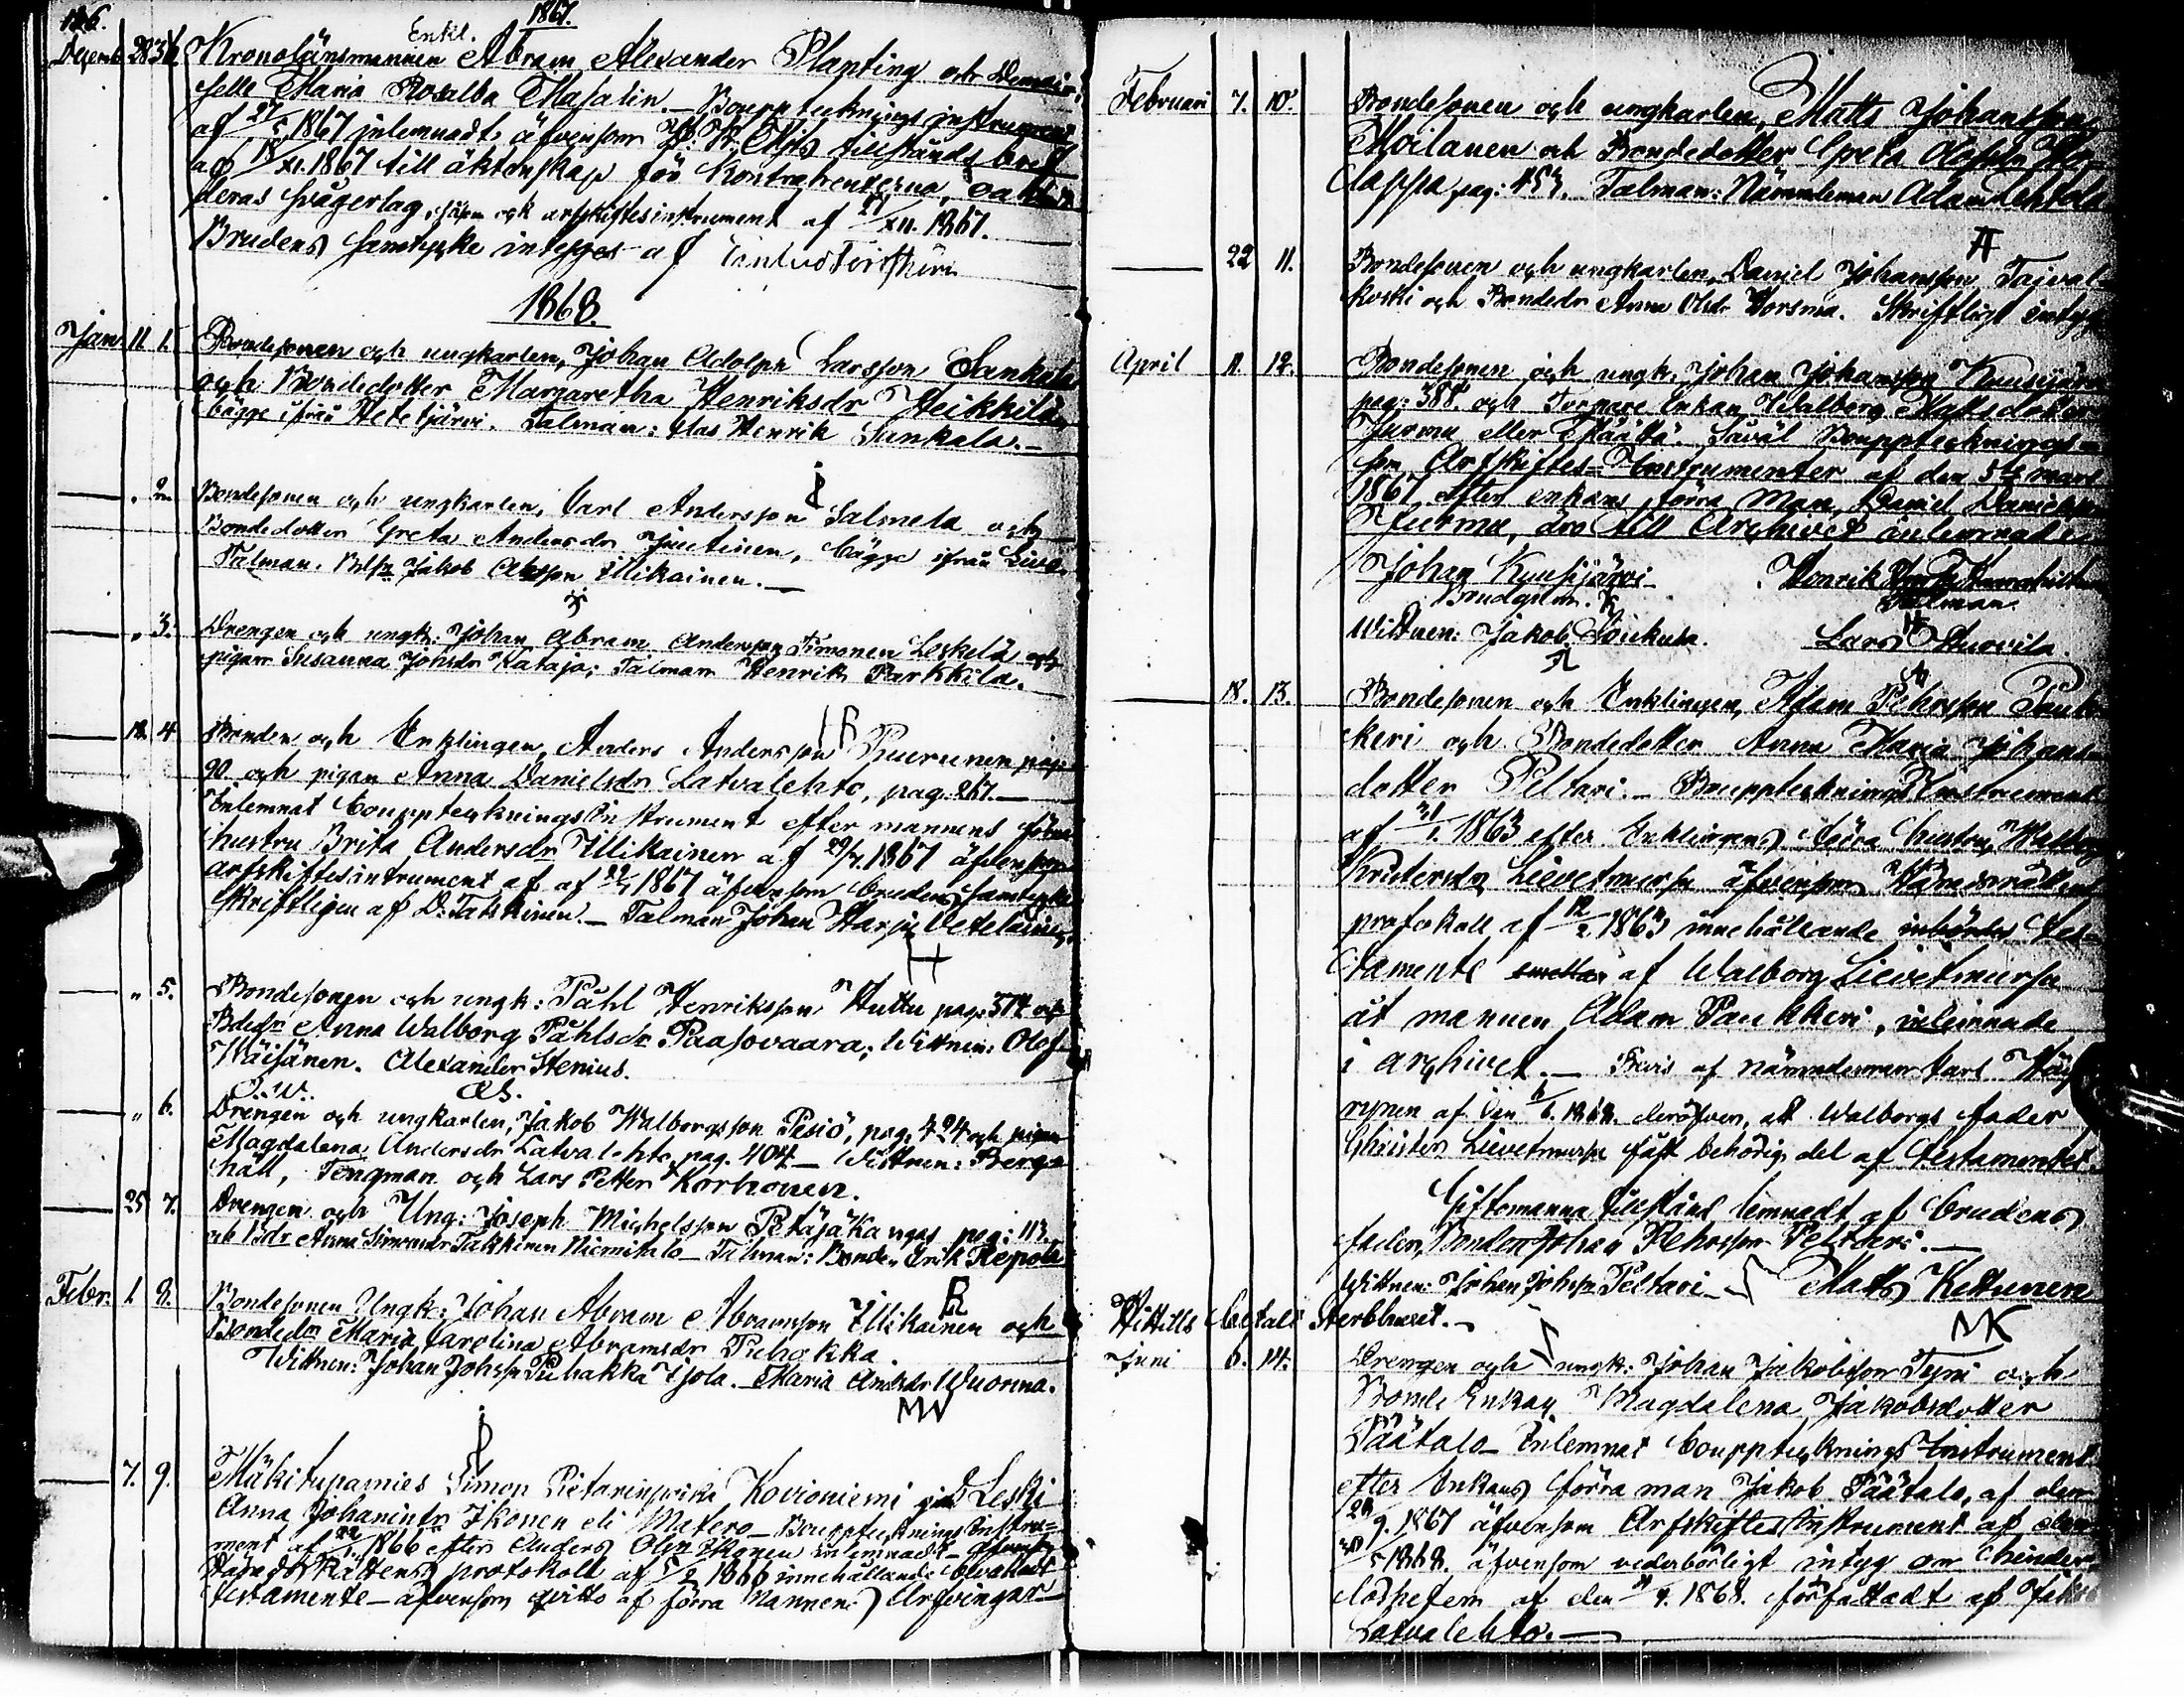 126.
1867.
Enkl.
Decemb. 28 36 Kronolänsmannen Abram Alexander Planting och Demoi-
selle Maria Rosalba Masalin.— Bouppteknings instrument
af 27/5 1867 inlemnadt äfvensom tillstånds bref
af 18/XI. 1867 till äktenskap för Kontrahenterna,
deras svågerlag, såsom ock arfskiftesinstrument af 27/XII. 1867.
Brudens samtycke intygges af
1868.
Jan. 11 1. Bondesonen och ungkarlen, Johan Adolph Larsson Sankala
och Bondedotter Margaretha Henriksdr Heikkilä,
bägge ifrån Hetetjärvi. Talman: Henrik Sankala.—
— „ 2. Bondesonen och ungkarlen, Carl Andersson Salmela och
Bondedotter Greta Andersdr Juutinen, bägge ifrån
Talman. Jakob Illikainen.—
— „ 3. Drengen och ungk: Johan Abram Andersson Timonen Leskelä och
pigan Susanna Johsdr Kataja; Talman Henrik Parkkila.
— 18. 4. Bonden och Enklingen, Anders Andersson Puurunen pag:
90. och pigan Anna Danielsdr Latvalehto, pag: 267.—
Inlemnat bouppteckningsinstrument efter mannens förra
hustru Brita Andersdr Illikainen af 29/7 1867 äfvensom
arfskiftesintrument af af 22/7 1867 äfvensom brudens samtycke
skriftligen af D. Takkinen.— Talman Johan Harju Veteläinen.
— „ 5. Bondesonen och ungk: Påhl Henriksson Huttu pag: 374 och
Bdedr Anna Walborg Påhlsdr Paasovaara; Wittnen: Olof
Wäisänen. Alexander Stenius.
O. W. A. S.
— „ 6. Drengen och ungkarlen, Jakob Walborgsson Pesiö, pag: 424 och pigan
Magdalena Andersdr Latvalehto pag. 404— Wittnen: Berg-
häll, Tengman och Lars Petter Korhonen.
— 25 7. Drengen och Ung: Joseph Michelsson Petäjäkangas pag: 113.
och Bdr Anna Simonsdr Takkinen Niemitalo— Talman: Bonden Erik Repola
Febr. 1. 8. Bondesonen Ungk: Johan Abram Abramsson Illikainen och
Bondedr Maria Carolina Abramsdr Puhakka.
Wittnen: Johan Johsson Puhakka Ijola.— Maria Andsdr Wuorma.
MW
— 7. 9. Mäkitupamies Simon Pietarinpoika Kovioniemi ja Leski
Anna Johanintr Ikonen eli Matero— Bouppteknings instru-
ment af 1866 efter Anders Ikonen inlemnadt— äfvensom
Häradsrättens protokoll af 5/2 1866 innehållande
testamente— äfvensom qvitto af förra Mannens Arfvingar—
Februari 7. 10. Bondesonen och ungkarlen, Matts Johansson
Moilanen och Bondedotter Greta Olofsdr
pag: 453. Talman: Nämndeman Adam Lehtola
— 22 11. Bondesonen och ungkarlen, Daniel Johansson Taival-
koski och Bondedr Anna Olsdr Horsma. Skriftligt intyg
April 11. 12. Bondesonen och ungk. Johan Johansson Kuusijärvi
pag: 388. och Torpare Enkan Walborg Mattsdotter
Jurmu eller Määttä. Såväl Bouppteknings-
som Arfskiftes-Instrumenter af den 5te mars
1867 efter enkans förra Man, Daniel Danielsson
Jurmu, äro till Archivet inlemnade.
Johan Kuusijärvi Henrik
Brudgum. Talman.
Wittnen: Jakob Loukusa. Lars Hurvila.
— 18. 13. Bondesonen och Enklingen, Adam Pehrsson Pauk-
keri och Bondedotter Anna Maria Johans-
dotter Peltari.— Bouppteknings Instrument
af 21/1. 1863 efter Enklingens förra hustru,
Kristersdr Lievetmursu äfvensom Häradsrättens
protokoll af 12/2 1863 innehållande inbördes Tes-
tamente af Walborg Lievetmursu
åt mannen Adam Paukkeri, inlemnade
i archivet.— Bevis af nämndeman Karl Häy-
rynen af den 6/6. 1868. deröfver, att Walborgs fader
Christer Lievetmursu fått behörig del af testamentet.
Giftomanna tillstånd lemnadt af brudens
fader, Bonden Johan Pehrsson Peltari.—
Wittnen: Johan Johsson Peltari— Matts Kettunen
MK
Hittills betalt Sterbhuset.—
Juni 6. 14. Drengen och ungk: Johan Jakobsson Tyni och
Bonde Enkan Magdalena Jakobsdotter
Päätalo— Inlemnat bouppteknings Instrument
efter Enkans förra man Jakob Päätalo, af den
29/9. 1867 äfvensom Arfskiftes Instrument af den
30/5 1868. äfvensom vederbörligt intyg om hinder-
löshetem af den 1868. författadt af
Latvalehto.—